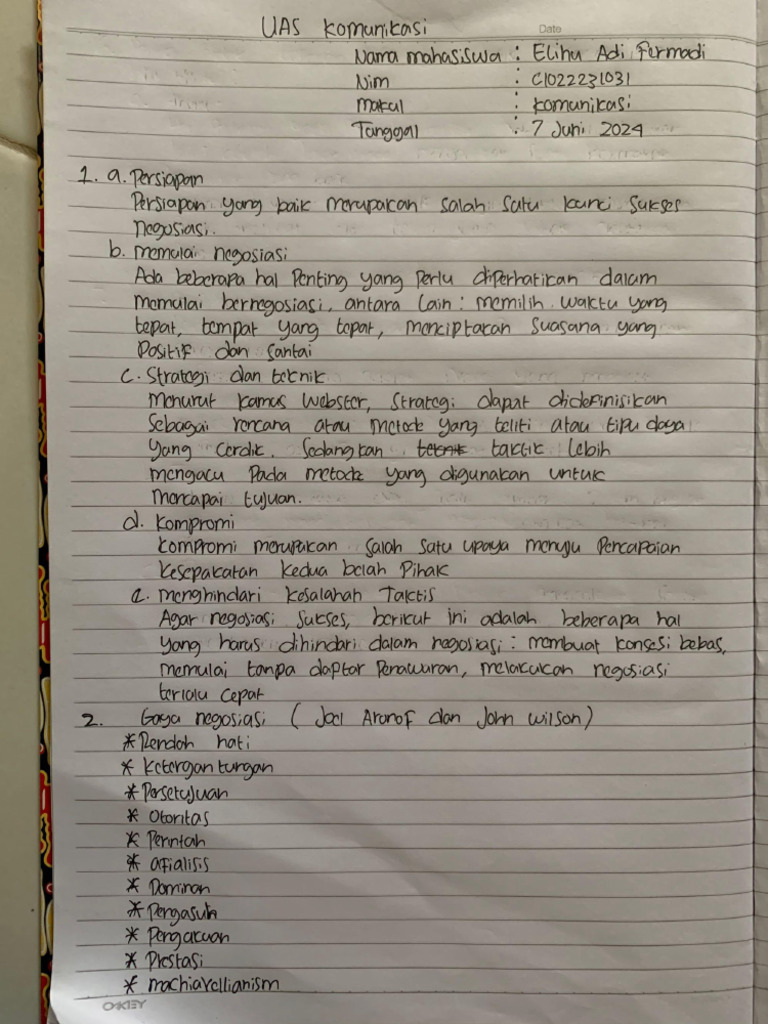 UAS Komunikasi
Date
Nama mahasiswa : Elihu Adi Permadi
Nim : C1022231031
makul : komunikasi
Tanggal : 7 Juni 2024
1. a. Persiapan
Persiapan yang baik merupakan salah satu kunci sukses
negosiasi.
b. memulai negosiasi
Ada beberapa hal penting yang perlu diperhatikan dalam
memulai bernegosiasi, antara lain : memilih waktu yang
tepat, tempat yang tepat, menciptakan suasana yang
Positif dan santai
c. Strategi dan teknik
menurut kamus webster, strategi dapat didefinisikan
sebagai rencana atau metode yang teliti atau tipu daya
yang cerdik. Sedangkan teknik taktik lebih
mengacu pada metode yang digunakan untuk
mencapai tujuan.
d. Kompromi
Kompromi merupakan salah satu upaya menuju Pencapaian
kesepakatan kedua belah Pihak
e. menghindari kesalahan Taktis
Agar negosiasi sukses, berikut ini adalah beberapa hal
yang harus dihindari dalam negosiasi : membuat konsesi bebas,
memulai tanpa daptar Penawaran, melakukan negosiasi
terlalu cepat
2. Gaya negosiasi ( Joel Aronof dan John Wilson )
* Rendah hati
* Ketergantungan
* Persetujuan
* Otoritas
* Perintah
* afialisis
* Dominan
* Pengasuh
* Pengakuan
* Prestasi
* machiavellianism
OKEY